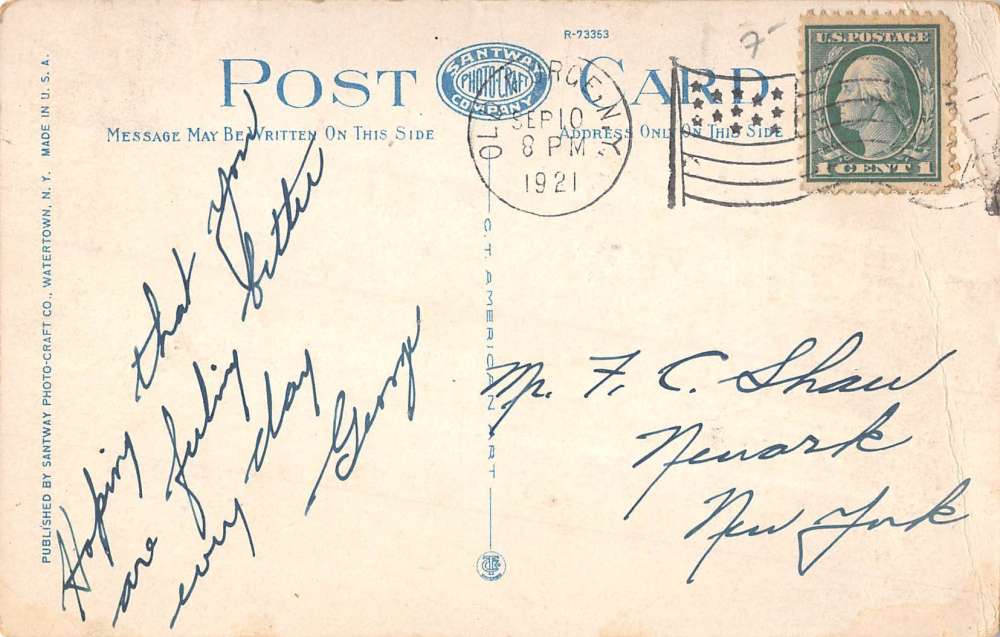 R-73353
7-
POST CARD
SANTWAY
PHOTO-CRAFT
COMPANY
MESSAGE MAY BE WRITTEN ON THIS SIDE
ADDRESS ONLY ON THIS SIDE
U.S. POSTAGE
1 CENT 1
OLD FORGE, N.Y.
SEP 10
8 PM
1921
PUBLISHED BY SANTWAY PHOTO-CRAFT CO., WATERTOWN, N. Y. MADE IN U. S. A.
C. T. AMERICAN ART
Hoping that You
are feeling better
every day
George
Mr. F. C. Shaw
Newark
New York